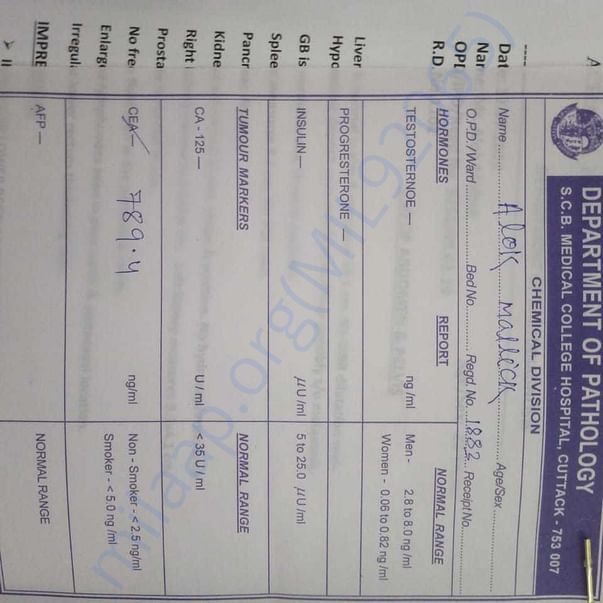 DEPARTMENT OF PATHOLOGY
S.C.B. MEDICAL COLLEGE HOSPITAL, CUTTACK - 753 007
CHEMICAL DIVISION
Name Alok Mallick Age/Sex
O.P.D. / Ward Bed No. Regd. No. 1882 Receipt No.
HORMONES REPORT NORMAL RANGE
TESTOSTERNOE — ng /ml Men - 2.8 to 8.0 ng /ml
Women - 0.06 to 0.82 ng /ml
PROGRESTERONE —
INSULIN — µU /ml 5 to 25.0 µU /ml
TUMOUR MARKERS NORMAL RANGE
CA - 125 — U / ml < 35 U / ml
CEA — 789.4 ng/ml Non - Smoker - < 2.5 ng/ml
Smoker - < 5.0 ng /ml
AFP — NORMAL RANGE
A
Dat
Nar
OPD
R.D
Liver
Hypo
GB is
Splee
Pancr
Kidne
Right
Prosta
No fre
Enlarg
Irregula
IMPRE
milaap.org(MIL92765)